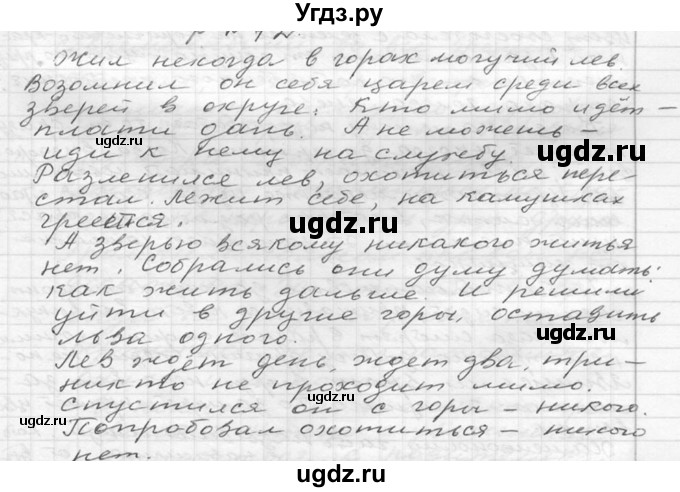 Угдз.ру
Жил некогда в горах могучий лев.
Возомнил он себя царем среди всех
зверей в округе: Кто мимо идёт –
плати дань. А не можешь –
иди к нему на службу.
Разленился лев, охотиться пере-
стал. Лежит себе, на камушках
греется.
А зверью всякому никакого житья
нет. Собрались они думу думать:
как жить дальше. И решили
уйти в другие горы, оставить
льва одного.
Лев ждёт день, ждет два, три –
никто не проходит мимо.
Спустился он с горы – никого.
Попробовал охотиться – никого
нет.
uгдz.ru
uгдz.ru
uгдz.ru
uгдz.ru
uгдz.ru
uгдz.ru
uгдz.ru
uгдz.ru
uгдz.ru